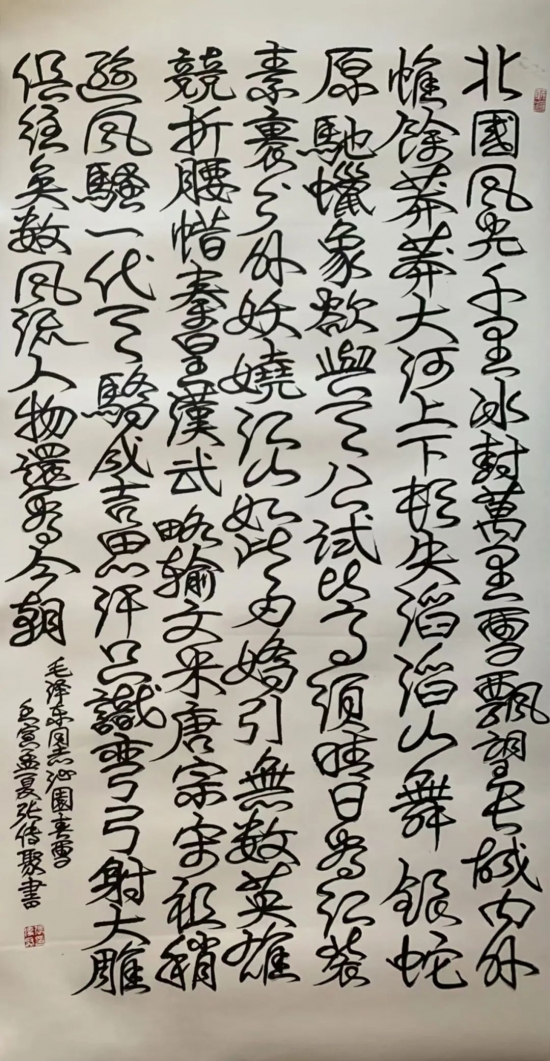 北國风光千里冰封萬里雪飄望长城内外
惟餘莽莽大河上下頓失滔滔山舞銀蛇
原馳蠟象欲與天公試比高須晴日看红装
素裹分外妖嬈江山如此多嬌引無数英雄
競折腰惜秦皇漢武略输文采唐宗宋祖稍
遜风騷一代天驕成吉思汗只識弯弓射大雕
俱往矣数风流人物還看今朝
毛泽东同志沁園春雪
壬寅孟夏张传聚書